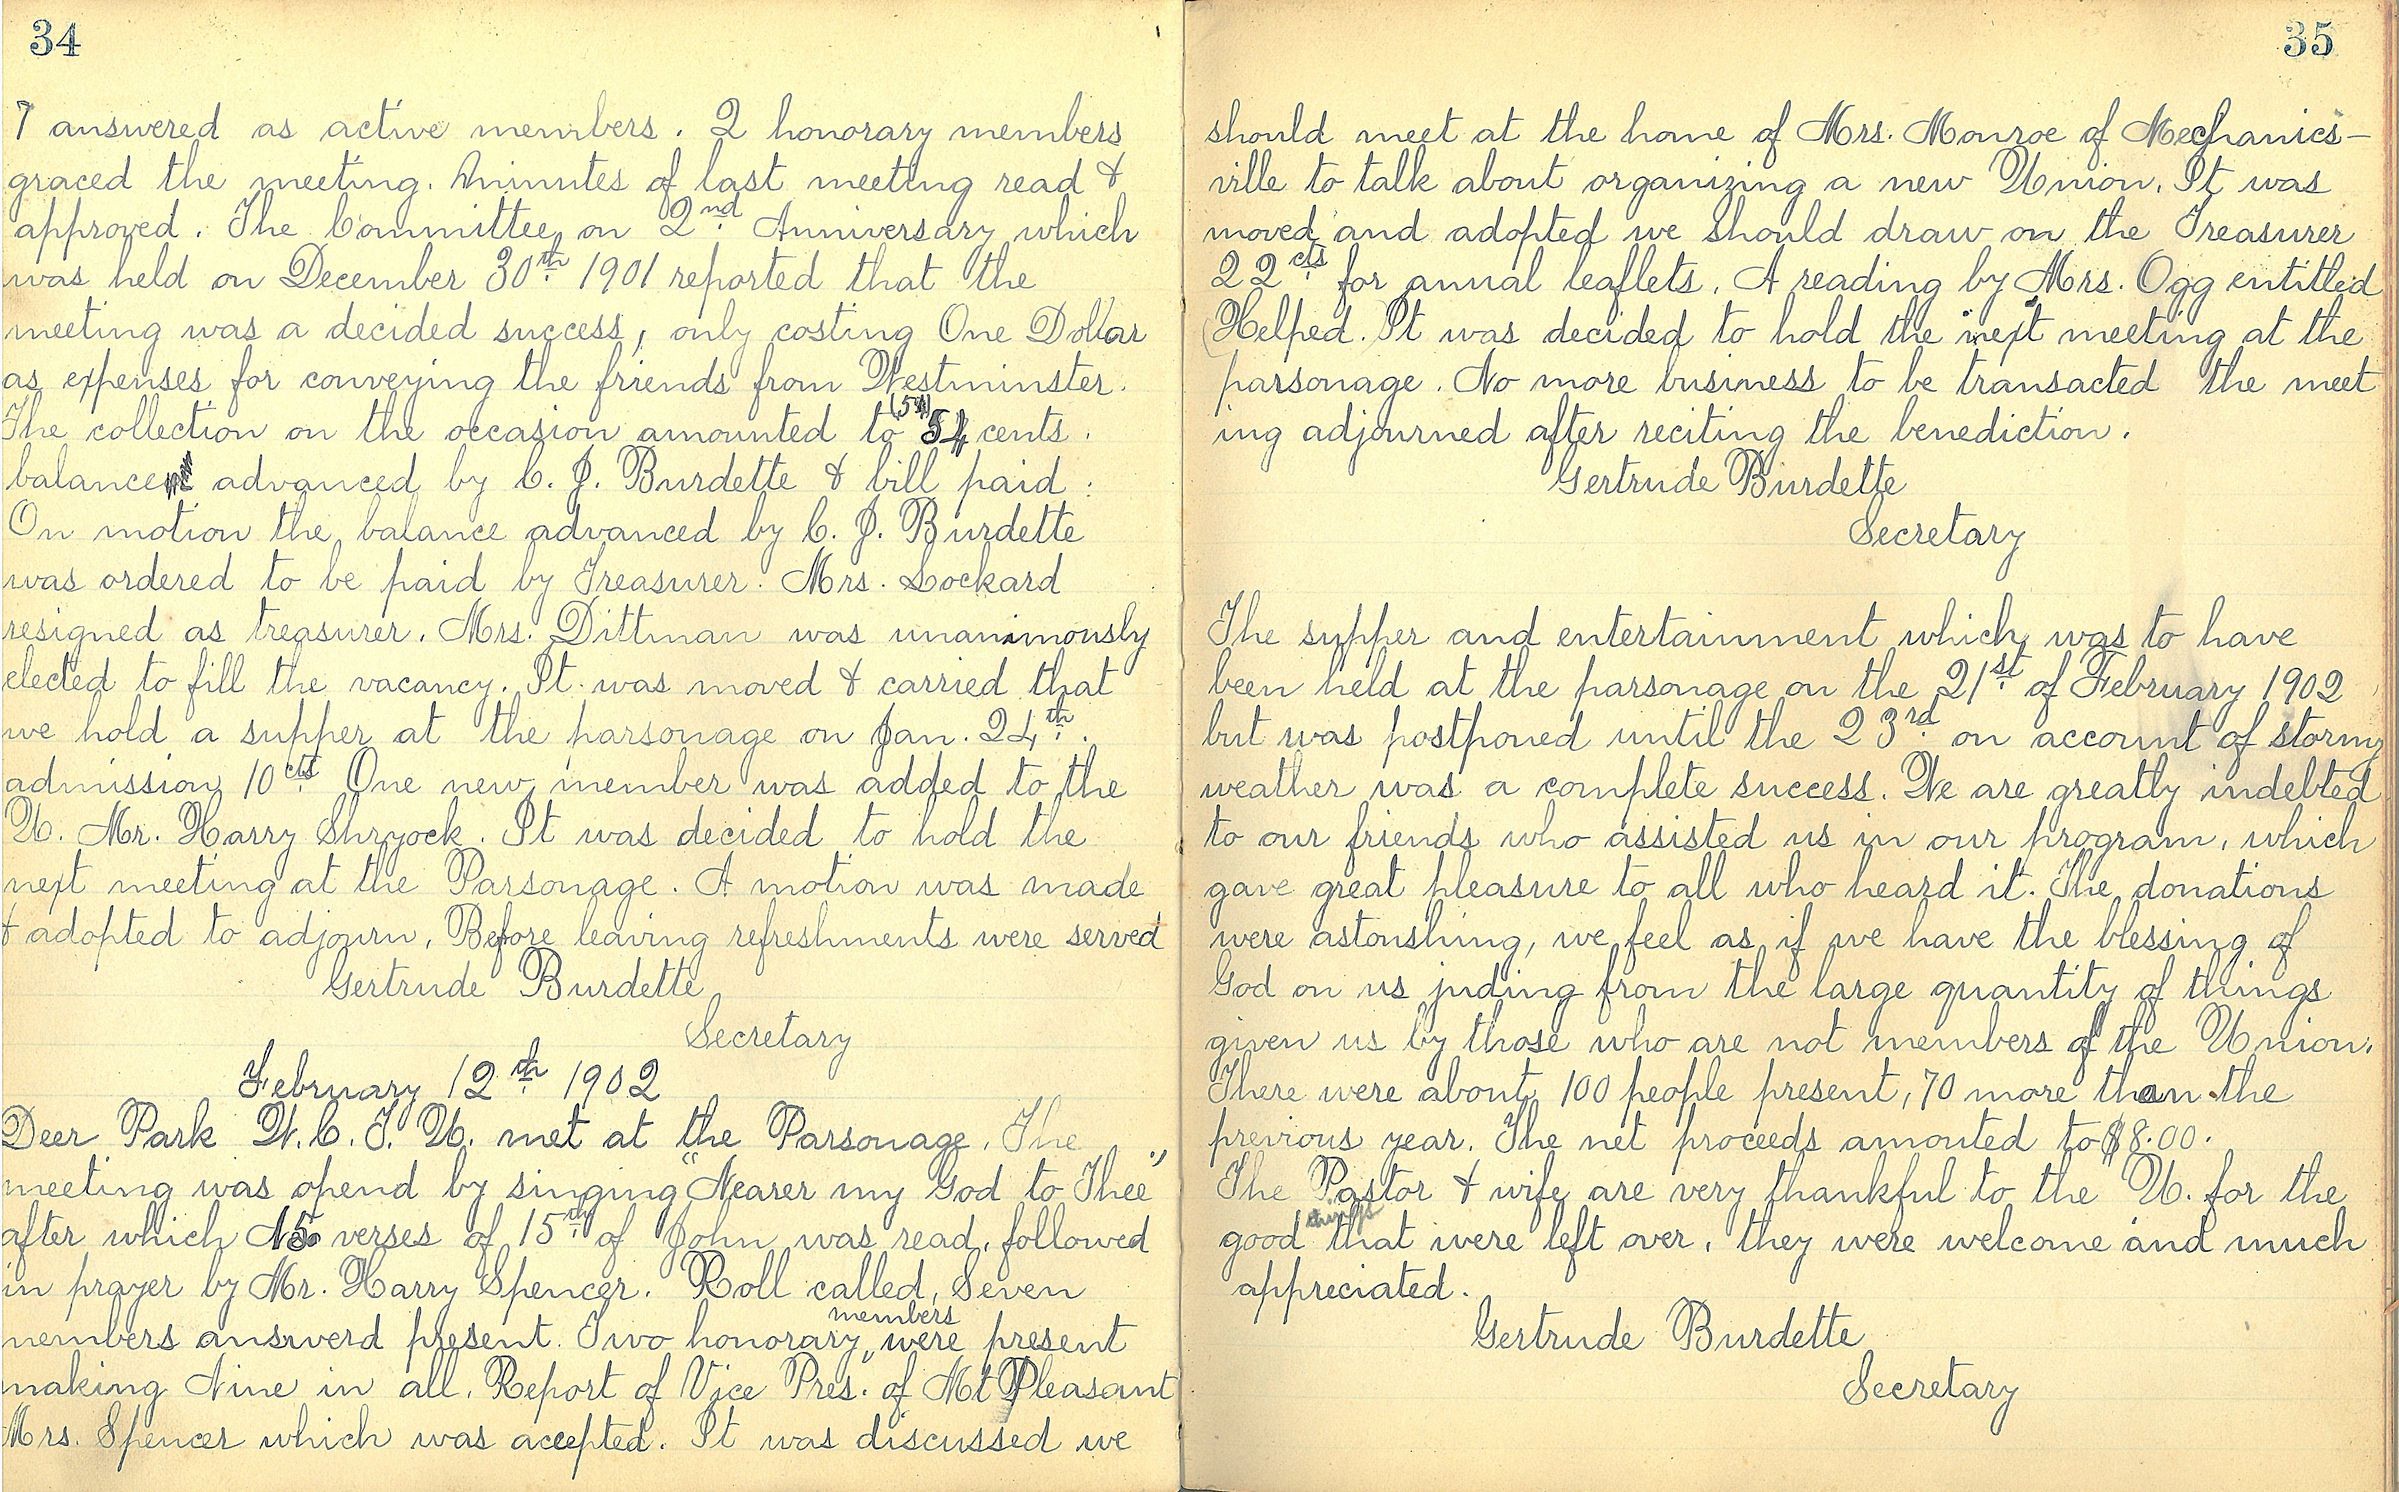 34
7 answered as active members. 2 honorary members
graced the meeting. Minnutes of last meeting read &
approved. The Committee on 2nd Anniversary which
was held on December 30th 1901 reported that the
meeting was a decided success, only costing One Dollar
as expenses for conveying the friends from Westminster.
The collection on the occasion amounted to (54) 54 cents.
balance advanced by C. J. Burdette & bill paid.
On motion the balance advanced by C. J. Burdette
was ordered to be paid by Treasurer. Mrs. Lockard
resigned as treasurer. Mrs. Dittman was unanimously
elected to fill the vacancy. It was moved & carried that
we hold a supper at the parsonage on Jan. 24th.
admission 10cts One new member was added to the
U. Mr. Harry Shryock. It was decided to hold the
next meeting at the Parsonage. A motion was made
& adopted to adjourn. Before leaving refreshments were served
Gertrude Burdette
Secretary
February 12th 1902
Deer Park W.C.T.U. met at the Parsonage. The
meeting was opend by singing "Nearer my God to Thee"
after which verses of 15th of John was read, followed
in prayer by Mr. Harry Spencer. Roll called, Seven
members answerd present. Two honorary members were present
making Nine in all. Report of Vice Pres. of Mt Pleasant
Mrs. Spencer which was accepted. It was discussed we
35
should meet at the home of Mrs. Monroe of Mechanics-
ville to talk about organizing a new Union. It was
moved and adopted we should draw on the Treasurer
22cts for annual leaflets. A reading by Mrs. Ogg entitled
Helped. It was decided to hold the next meeting at the
parsonage. No more business to be transacted the meet
ing adjourned after reciting the benediction.
Gertrude Burdette
Secretary
The supper and entertainment which was to have
been held at the parsonage on the 21st of February 1902
but was postponed until the 23rd on account of stormy
weather was a complete success. We are greatly indebted
to our friends who assisted us in our program, which
gave great pleasure to all who heard it. The donations
were astonshing, we feel as if we have the blessing of
God on us juding from the large quantity of things
given us by those who are not members of the Union.
There were about 100 people present, 70 more than the
previous year. The net proceeds amouted to $8.00.
The Pastor & wife are very thankful to the U. for the
good things that were left over, they were welcome and much
appreciated.
Gertrude Burdette
Secretary